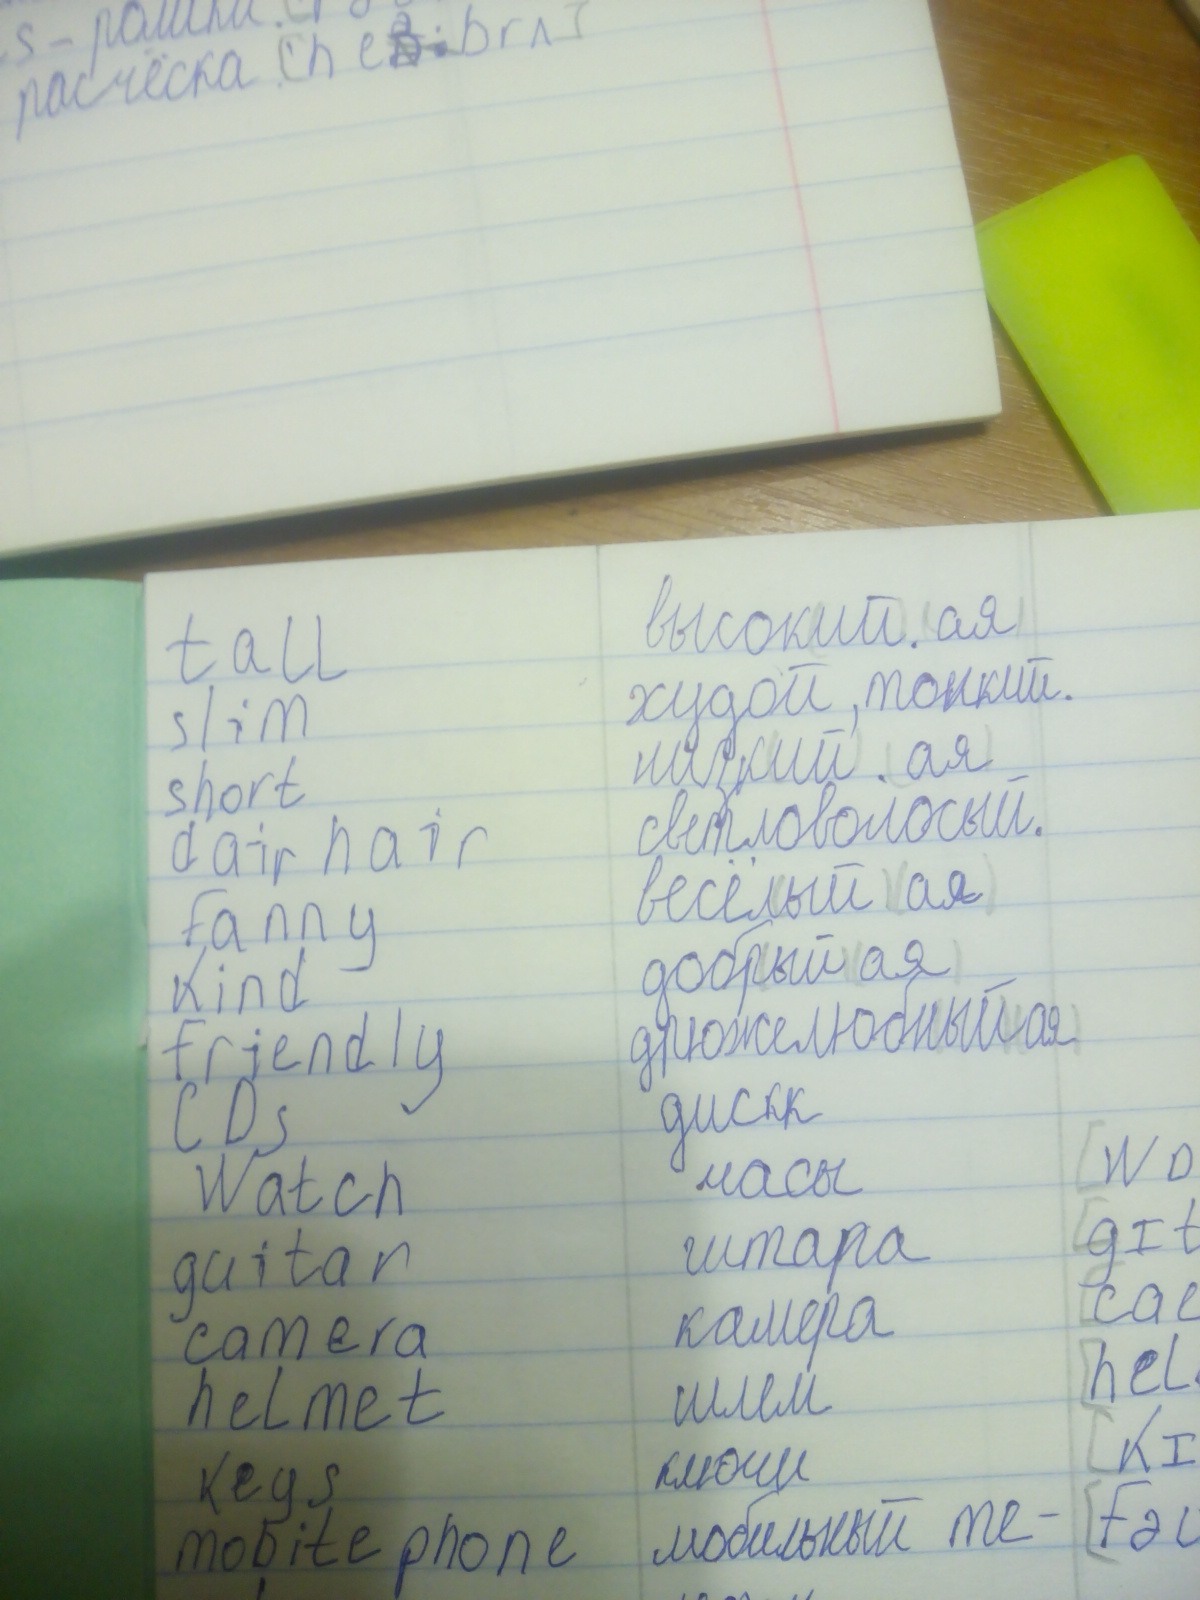 s - ромки
расчёска
tall высокий. ая
slim худой, тонкий.
short низкий. ая
dair hair светловолосый.
fanny весёлый ая
kind добрый ая
friendly дрюжелюбный ая
CDs дискк
Watch часы [WD
guitar штара [gIt
camera камера [cae
helmet шлем [hel
kegs ключи [KI
mobite phone мобильный те- [fəu